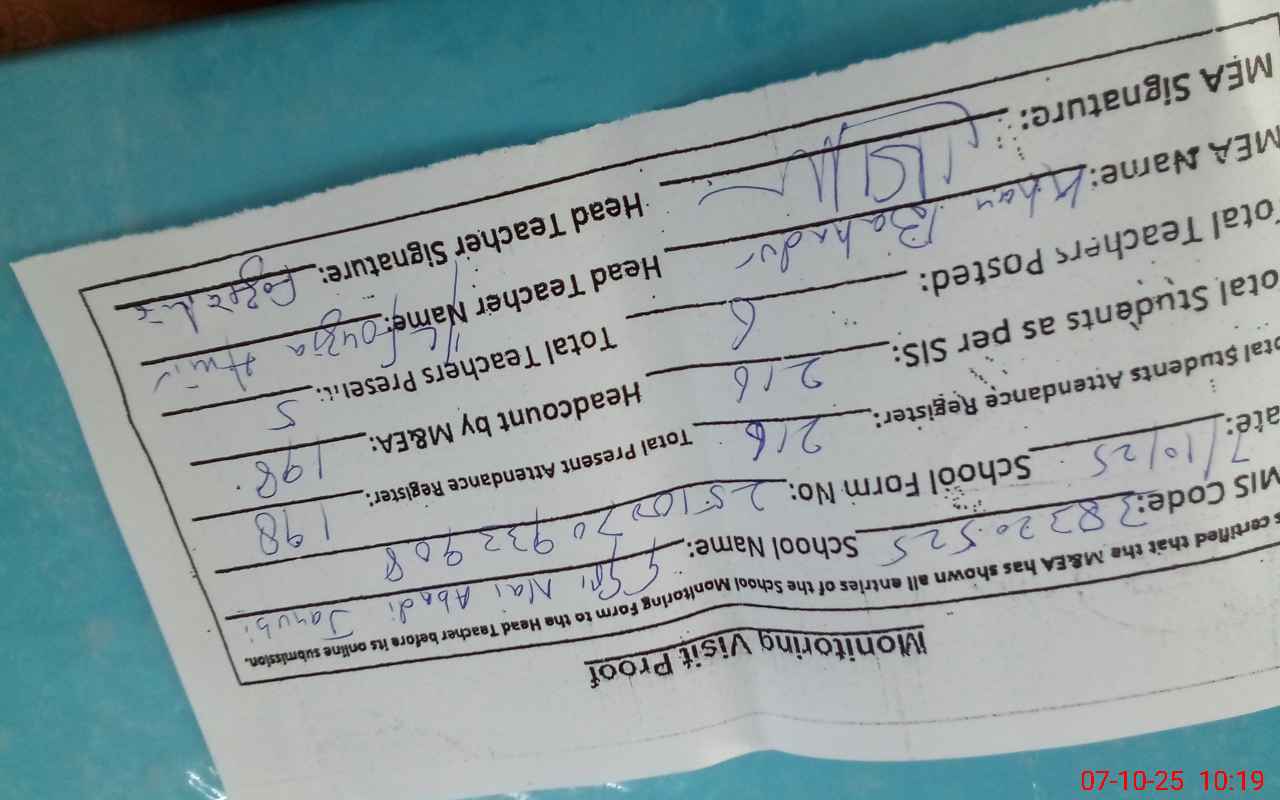 Monitoring Visit Proof
s certified that the M&EA has shown all entries of the School Monitoring Form to the Head Teacher before its online submission.
MIS Code: 38320525 School Name: GGPS Nai Abadi Janubi
ate: 7/10/25 School Form No: 251020933908
otal Students Attendance Register: 216 Total Present Attendance Register: 198
otal Students as per SIS: 216 Headcount by M&EA: 198
otal Teachers Posted: 6 Total Teachers Present: 5
MEA Name: Khan Bahadur Head Teacher Name: Fouzia
MEA Signature: Head Teacher Signature:
07-10-25 10:19